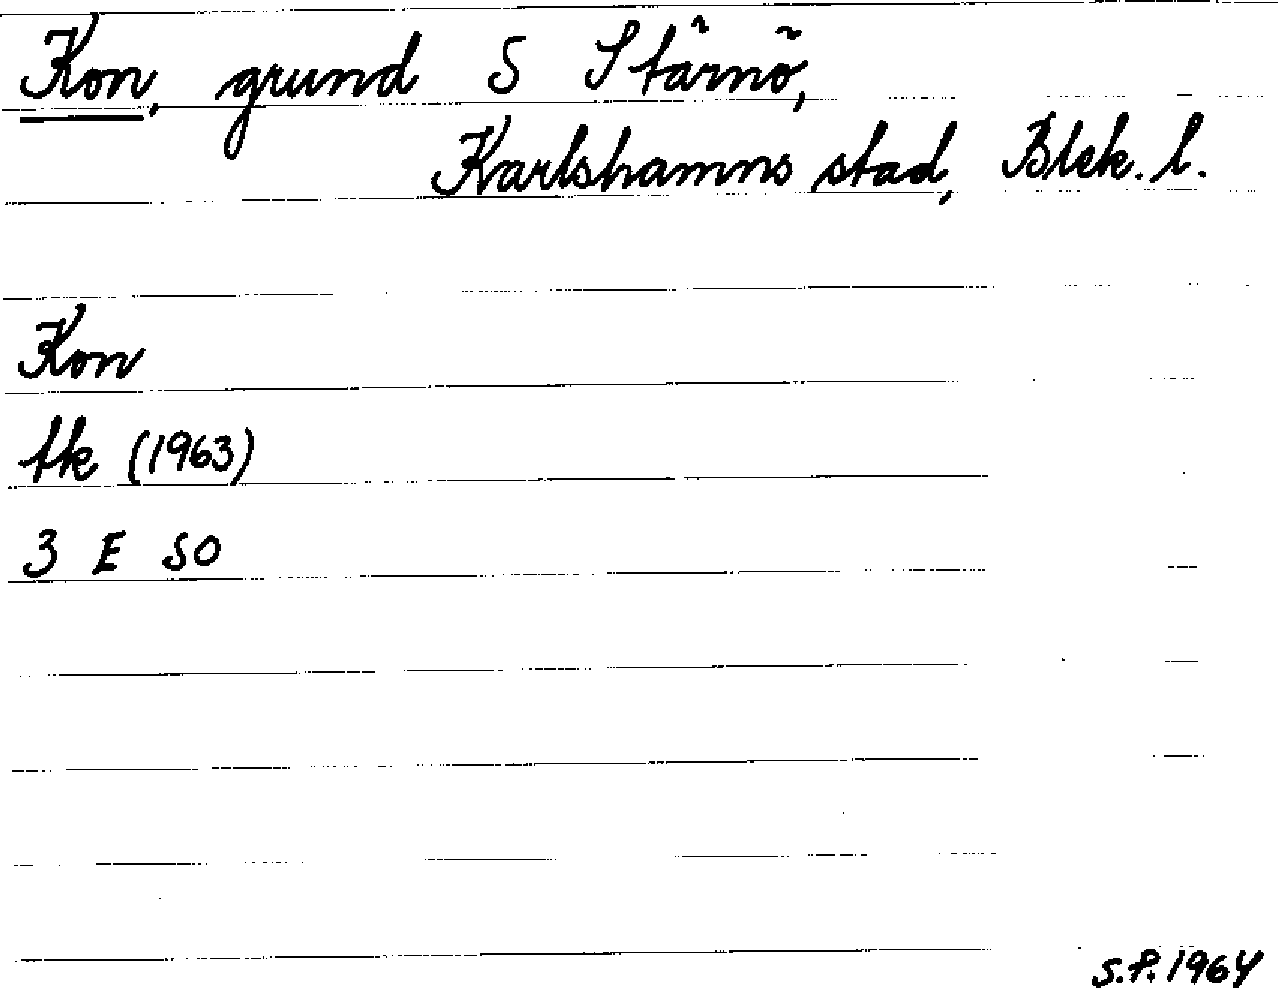 Kon, grund S Stärnö,
Karlshamns stad, Blek. l.
Kon
tk (1963)
3 E SO
S.F. 1964